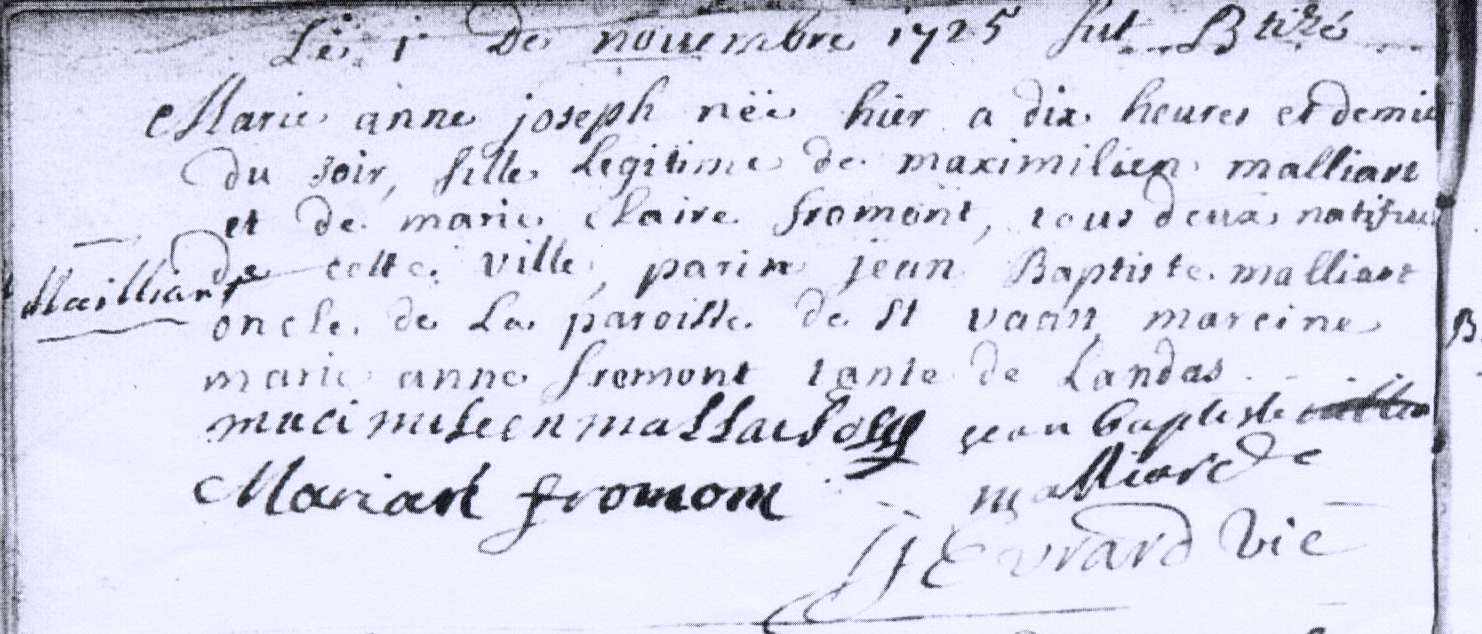 Le 1 de nouembre 1725 fut Btizé
Marie anne joseph née hier a dix heures et demie
du soir, fille Legitime de maximilien malliart
et de marie claire fromont, tous deux natifs
de cette ville, parin jean Baptiste malliart
Mailliart
oncle de La paroisse de st vaan mareine
marie anne fromont tante de Landas
jean baptiste
Marian fromom
malliard
Evrard vic